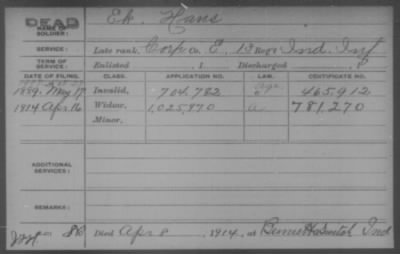 DEAD Ek. Hans
NAME OF SOLDIER:
SERVICE: Late rank, Corp Co. E, 13 Reg't Ind. Inf
TERM OF SERVICE: Enlisted 1 Discharged 1
DATE OF FILING. CLASS. APPLICATION NO. LAW. CERTIFICATE NO.
1889, May 17 Invalid, 704,782 465,912
1914 Apr 16 Widow, 1,025,970 a 781,270
Minor,
ADDITIONAL SERVICES:
REMARKS:
Died Apr 8, 1914, at Ind